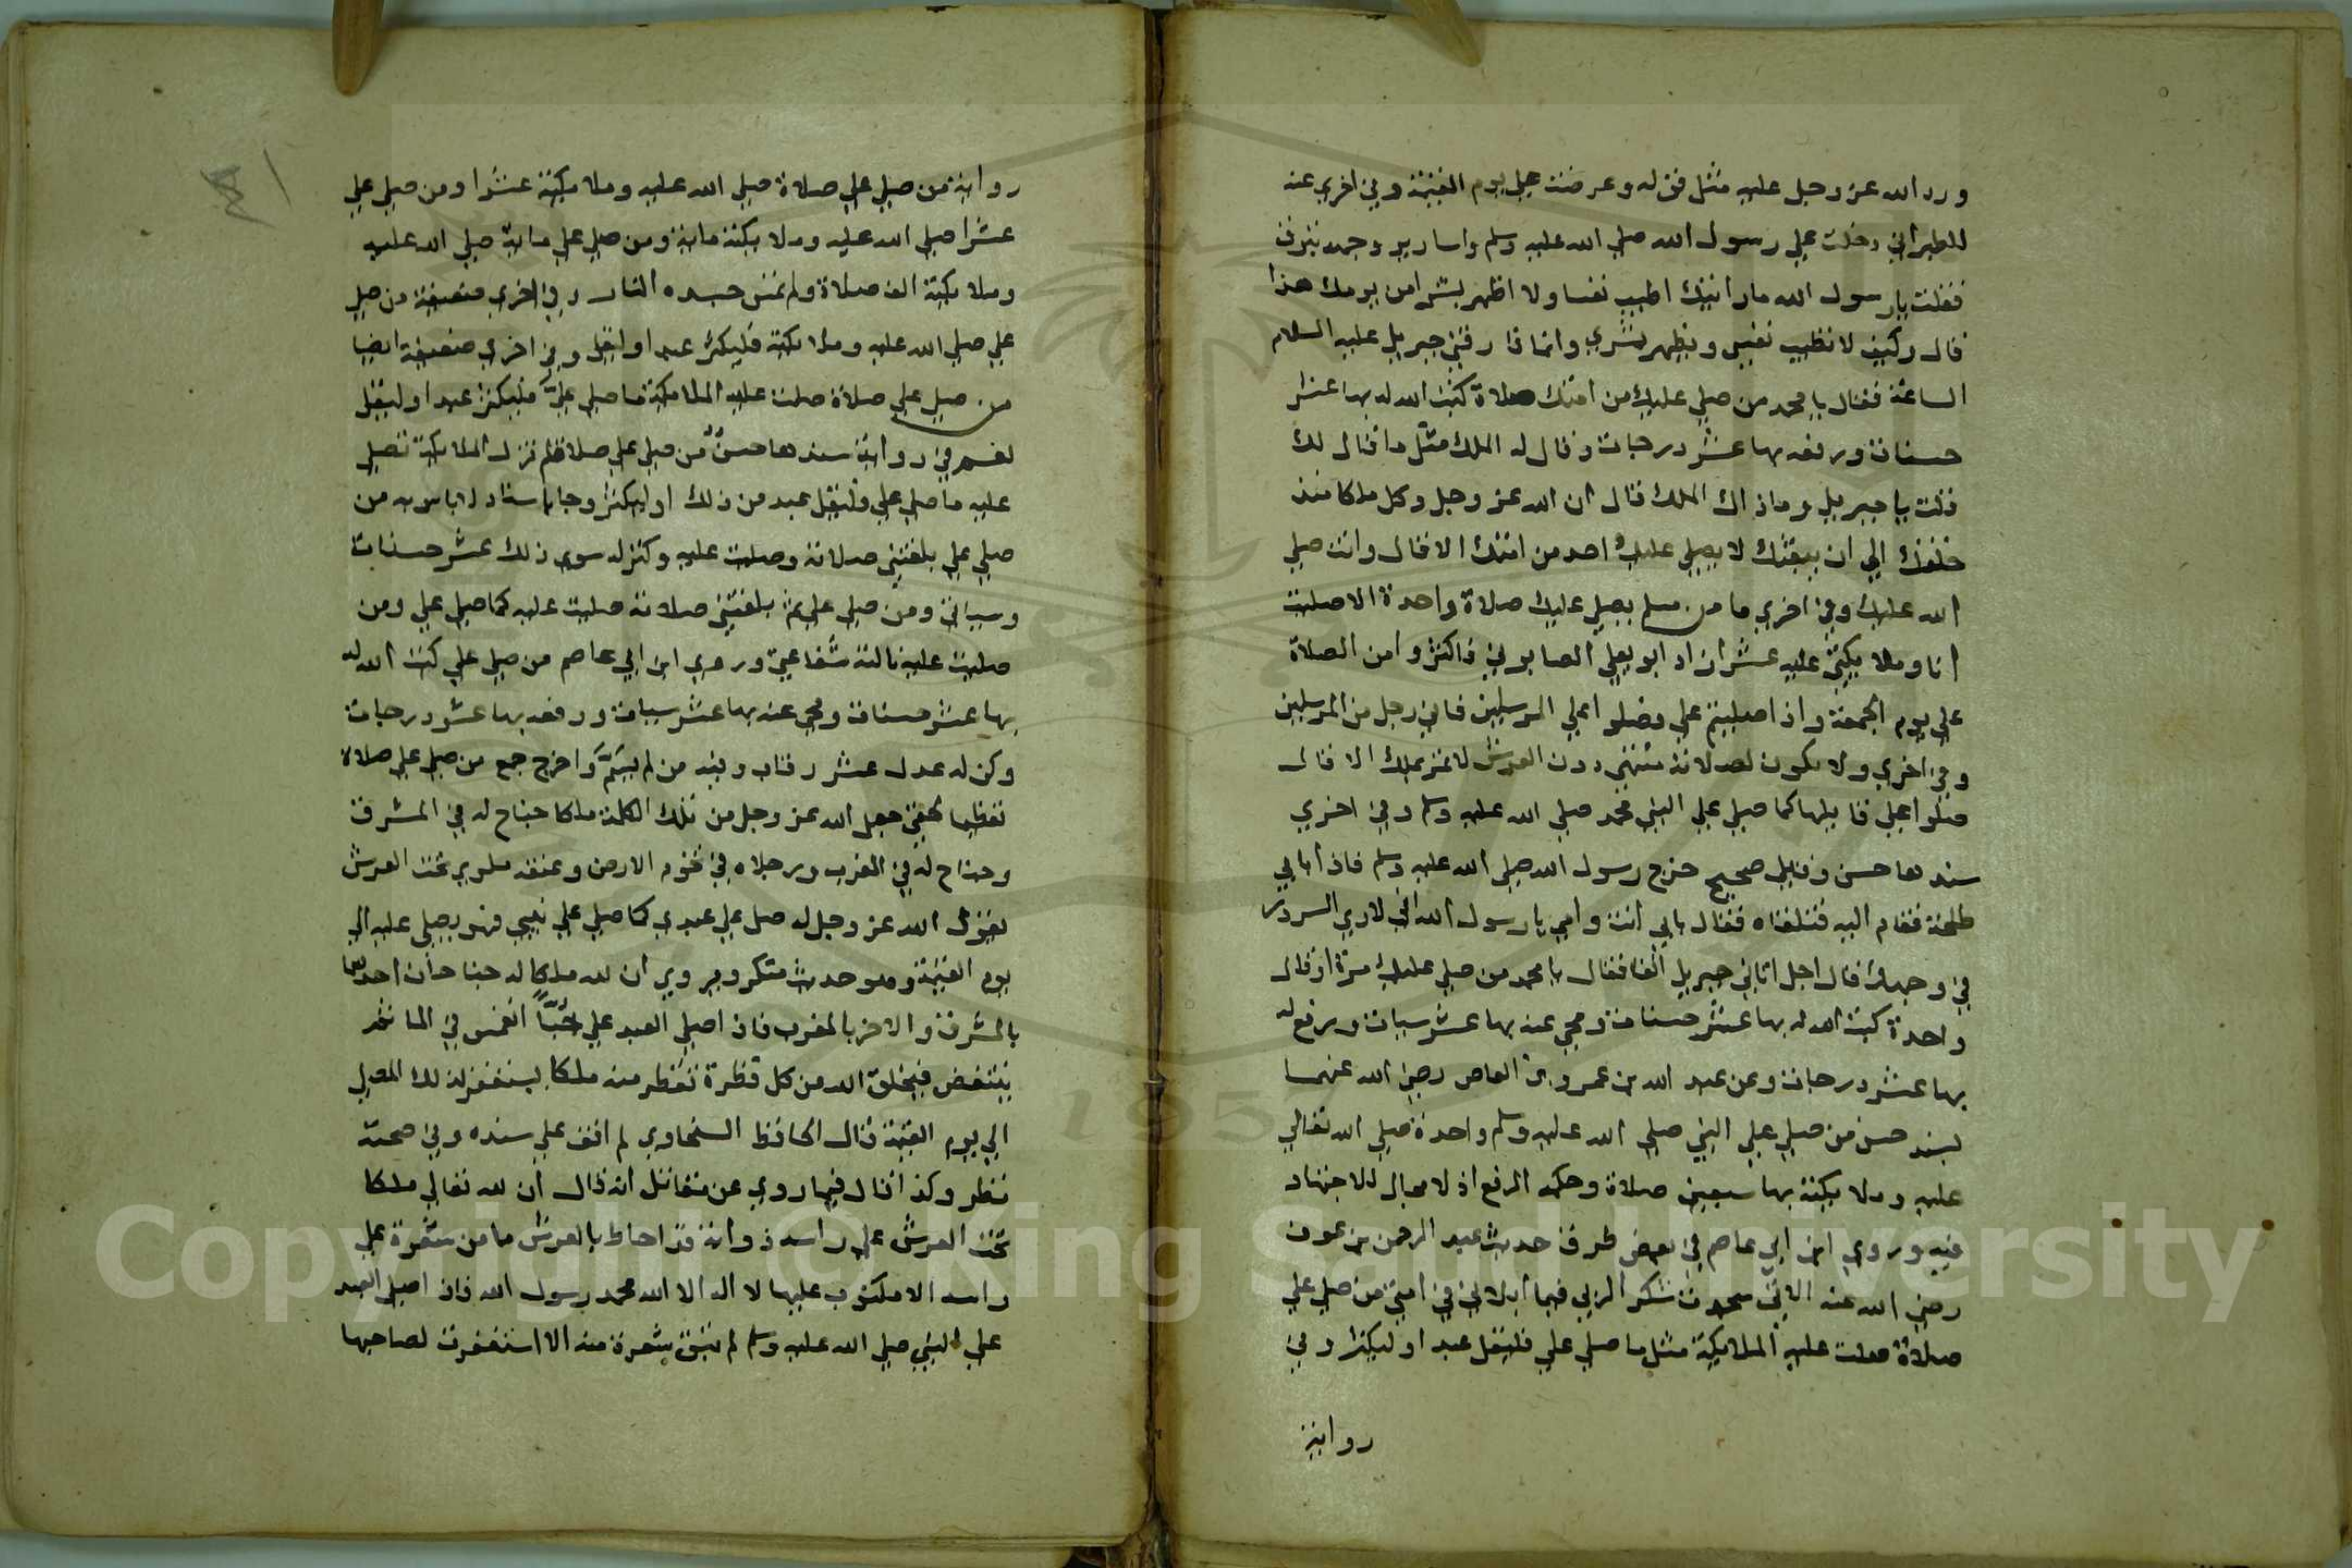 ورد الله عز وجل عليه مثل قوله وعرضت علي يوم القيمة وفي اخري عنه
للطبراني دخلت علي رسول الله صلي الله عليه وسلم واسارير وجهه تبرق
فقلت يارسول الله ما رايتك اطيب نفسا ولا اظهر بشرا من يومك هذا
قال وكيف لا تطيب نفسي ويظهر بشري وانما فارقني جبريل عليه السلام
الساعة فقال يا محمد من صلي عليك من امتك صلاة كتب الله له بها عشر
حسنات ورفعه بها عشر درجات وقال له الملك مثل ما قال لك
قلت يا جبريل وما ذاك الملك قال ان الله عز وجل وكل ملكا منذ
خلقك الي ان يبعثك لا يصلي عليك احد من امتك الا قال وانت صلي
الله عليك وفي اخري ما من مسلم يصلي عليك صلاة واحدة الا صليت
انا وملايكتي عليه عشرا زاد ابو يعلي الصابوني فاكثروا من الصلاة
علي يوم الجمعة واذا صليتم علي فصلوا علي المرسلين فاني رجل من المرسلين
وفي اخري ولا يكون لصلاته منتهي دون العرش لا تمر بملك الا قال
صلوا علي قايلها كما صلي علي النبي محمد صلي الله عليه وسلم وفي اخري
سندها حسن وقيل صحيح خرج رسول الله صلي الله عليه وسلم فاذا بابي
طلحة فقام اليه فتلقاه فقال بابي انت وامي يا رسول الله اني لاري السرور
في وجهك قال اجل اتاني جبريل انفا فقال يا محمد من صلي عليك مرة او قال
واحدة كتب الله له بها عشر حسنات ومحي عنه بها عشر سيات ورفع له
بها عشر درجات وعن عبد الله بن عمرو بن العاص رضي الله عنهما
بسند حسن من صلي علي النبي صلي الله عليه وسلم واحدة صلي الله تعالي
عليه وملايكته بها سبعين صلاة وحكمه الرفع اذ لا مجال للاجتهاد
فيه وروي ابن ابي عاصم في بعض طرق حديث عبد الرحمن بن عوف
رضي الله عنه الاتي سجدت شكرا لربي فيما ابلاني في امتي من صلي علي
صلاة صلت عليه الملايكة مثل ما صلي علي فليقل عبد او ليكثر وفي
رواية
رواية من صلي علي صلاة صلي الله عليه وملايكته عشرا ومن صلي علي
عشرا صلي الله عليه وملايكته ماية ومن صلي علي ماية صلي الله عليه
وملايكته الف صلاة ولم تمس جسده النار وفي اخري ضعيفة من صلي
علي صلي الله عليه وملايكته فليكثر عبد او ليقل وفي اخري ضعيفة ايضا
من صلي علي صلاة صلت عليه الملايكة ما صلي علي فليكثر عبد او ليقل
نعم في رواية سندها حسن من صلي علي صلاة لم تزل الملايكة تصلي
عليه ما صلي علي فليقل عبد من ذلك او ليكثر وجا باسناد لا باس به من
صلي علي بلغتني صلاته وصليت عليه وكتب له سوي ذلك عشر حسنات
وسياتي ومن صلي علي بلغتني صلاته صليت عليه كما صلي علي ومن
صليت عليه نالته شفاعتي وروي ابن ابي عاصم من صلي علي كتب الله له
بها عشر حسنات ومحي عنه بها عشر سيات ورفعه بها عشر درجات
وكن له عدل عشر رقاب وفيه من لم يسم واخرج جمع من صلي علي صلاة
تعظيما لحقي جعل الله عز وجل من تلك الكلمة ملكا جناح له في المشرق
وجناح له في المغرب ورجلاه في تخوم الارض وعنقه ملوي تحت العرش
يقول الله عز وجل له صل علي عبدي كما صلي علي نبيي فهو يصلي عليه الي
يوم القيمة وهو حديث منكر ويروي ان لله ملكا له جناحان احدهما
بالمشرق والاخر بالمغرب فاذا صلي العبد علي حبا انغمس في الما ثم
ينتفض فيخلق الله من كل قطرة تقطر منه ملكا يستغفر لذلك المصلي
الي يوم القيمة قال الحافظ السخاوي لم اقف علي سنده وفي صحته
نظر وكذا قال فيما روي عن مقاتل انه قال ان لله تعالي ملكا
تحت العرش علي راسه ذوابة قد احاط بالعرش ما من شعرة علي
راسه الا مكتوب عليها لا اله الا الله محمد رسول الله فاذا صلي العبد
علي النبي صلي الله عليه وسلم لم تبق شعرة منه الا استغفرت لصاحبها